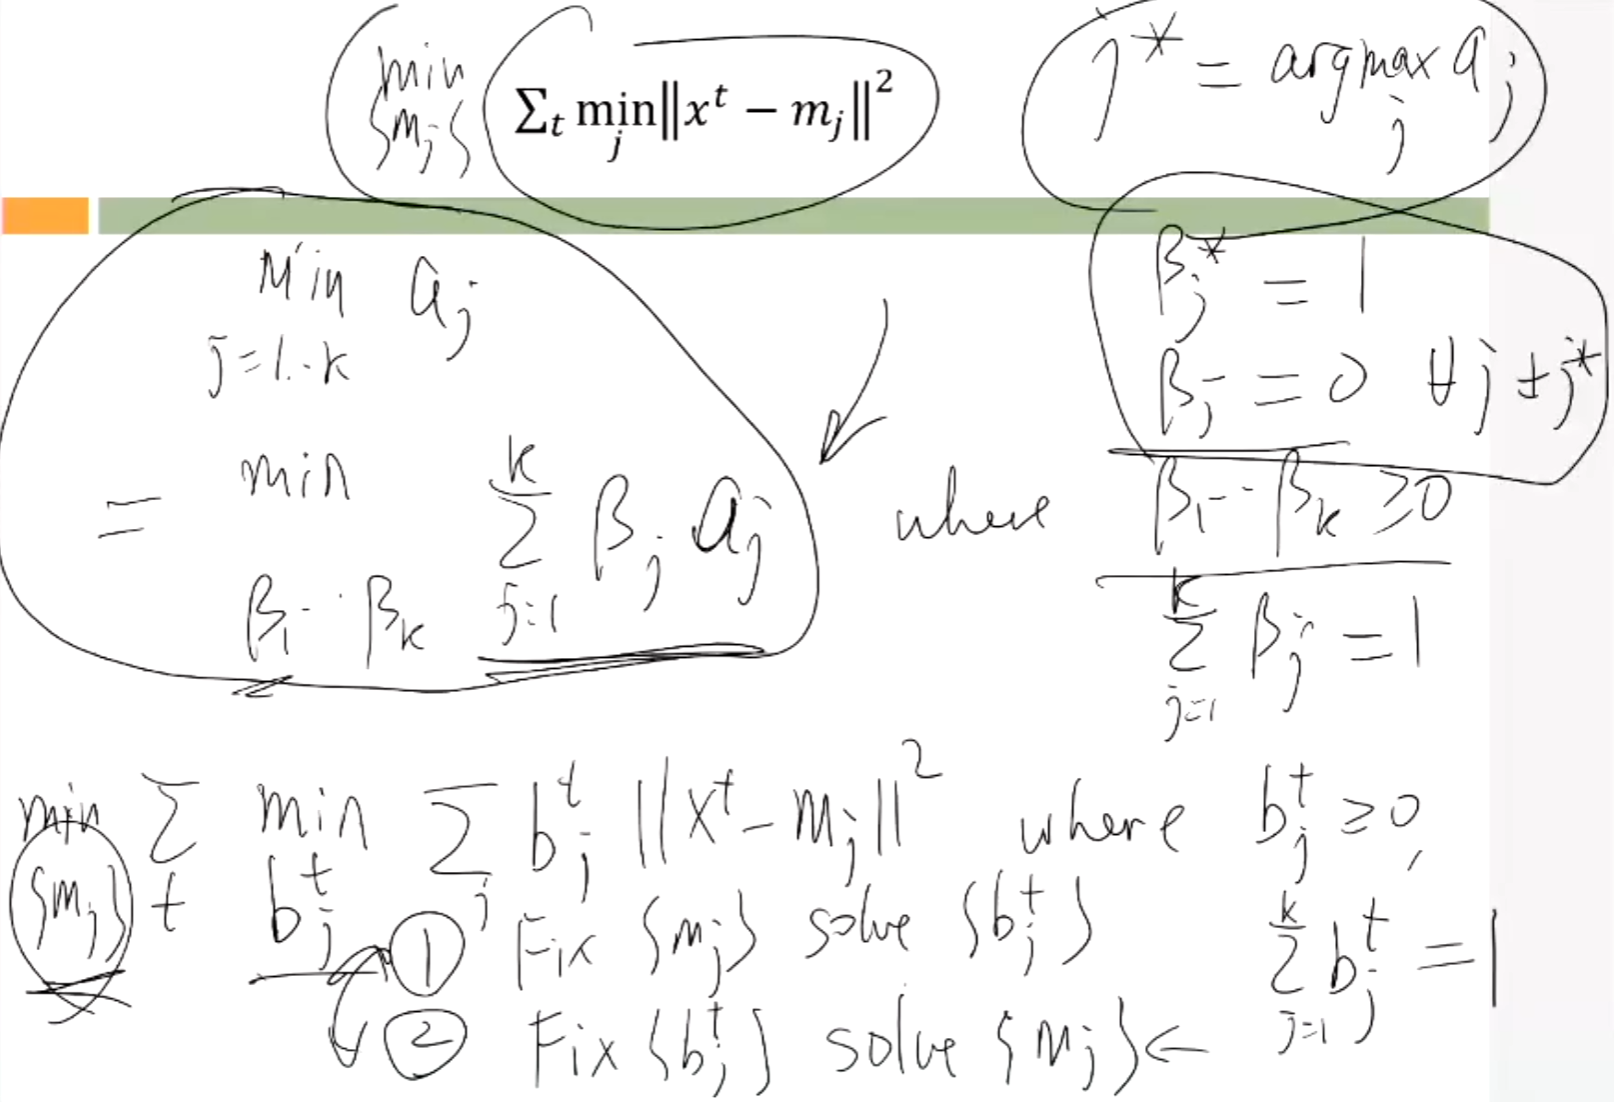 min {m_j} Σ_t min_j ‖x^t − m_j‖^2
j* = argmax_j a_j
Min_{j=1..k} a_j
β_j* = 1
β_j = 0 ∀j ≠ j*
= min_{β_1..β_k} Σ_{j=1}^k β_j a_j where β_1..β_k ≥ 0
Σ_{j=1}^k β_j = 1
min_{{m_j}} Σ_t min_{b_j^t} Σ_j b_j^t ||x^t − m_j||^2 where b_j^t ≥ 0,
Σ_{j=1}^k b_j^t = 1
① Fix {m_j} solve {b_j^t}
② Fix {b_j^t} solve {m_j} ←